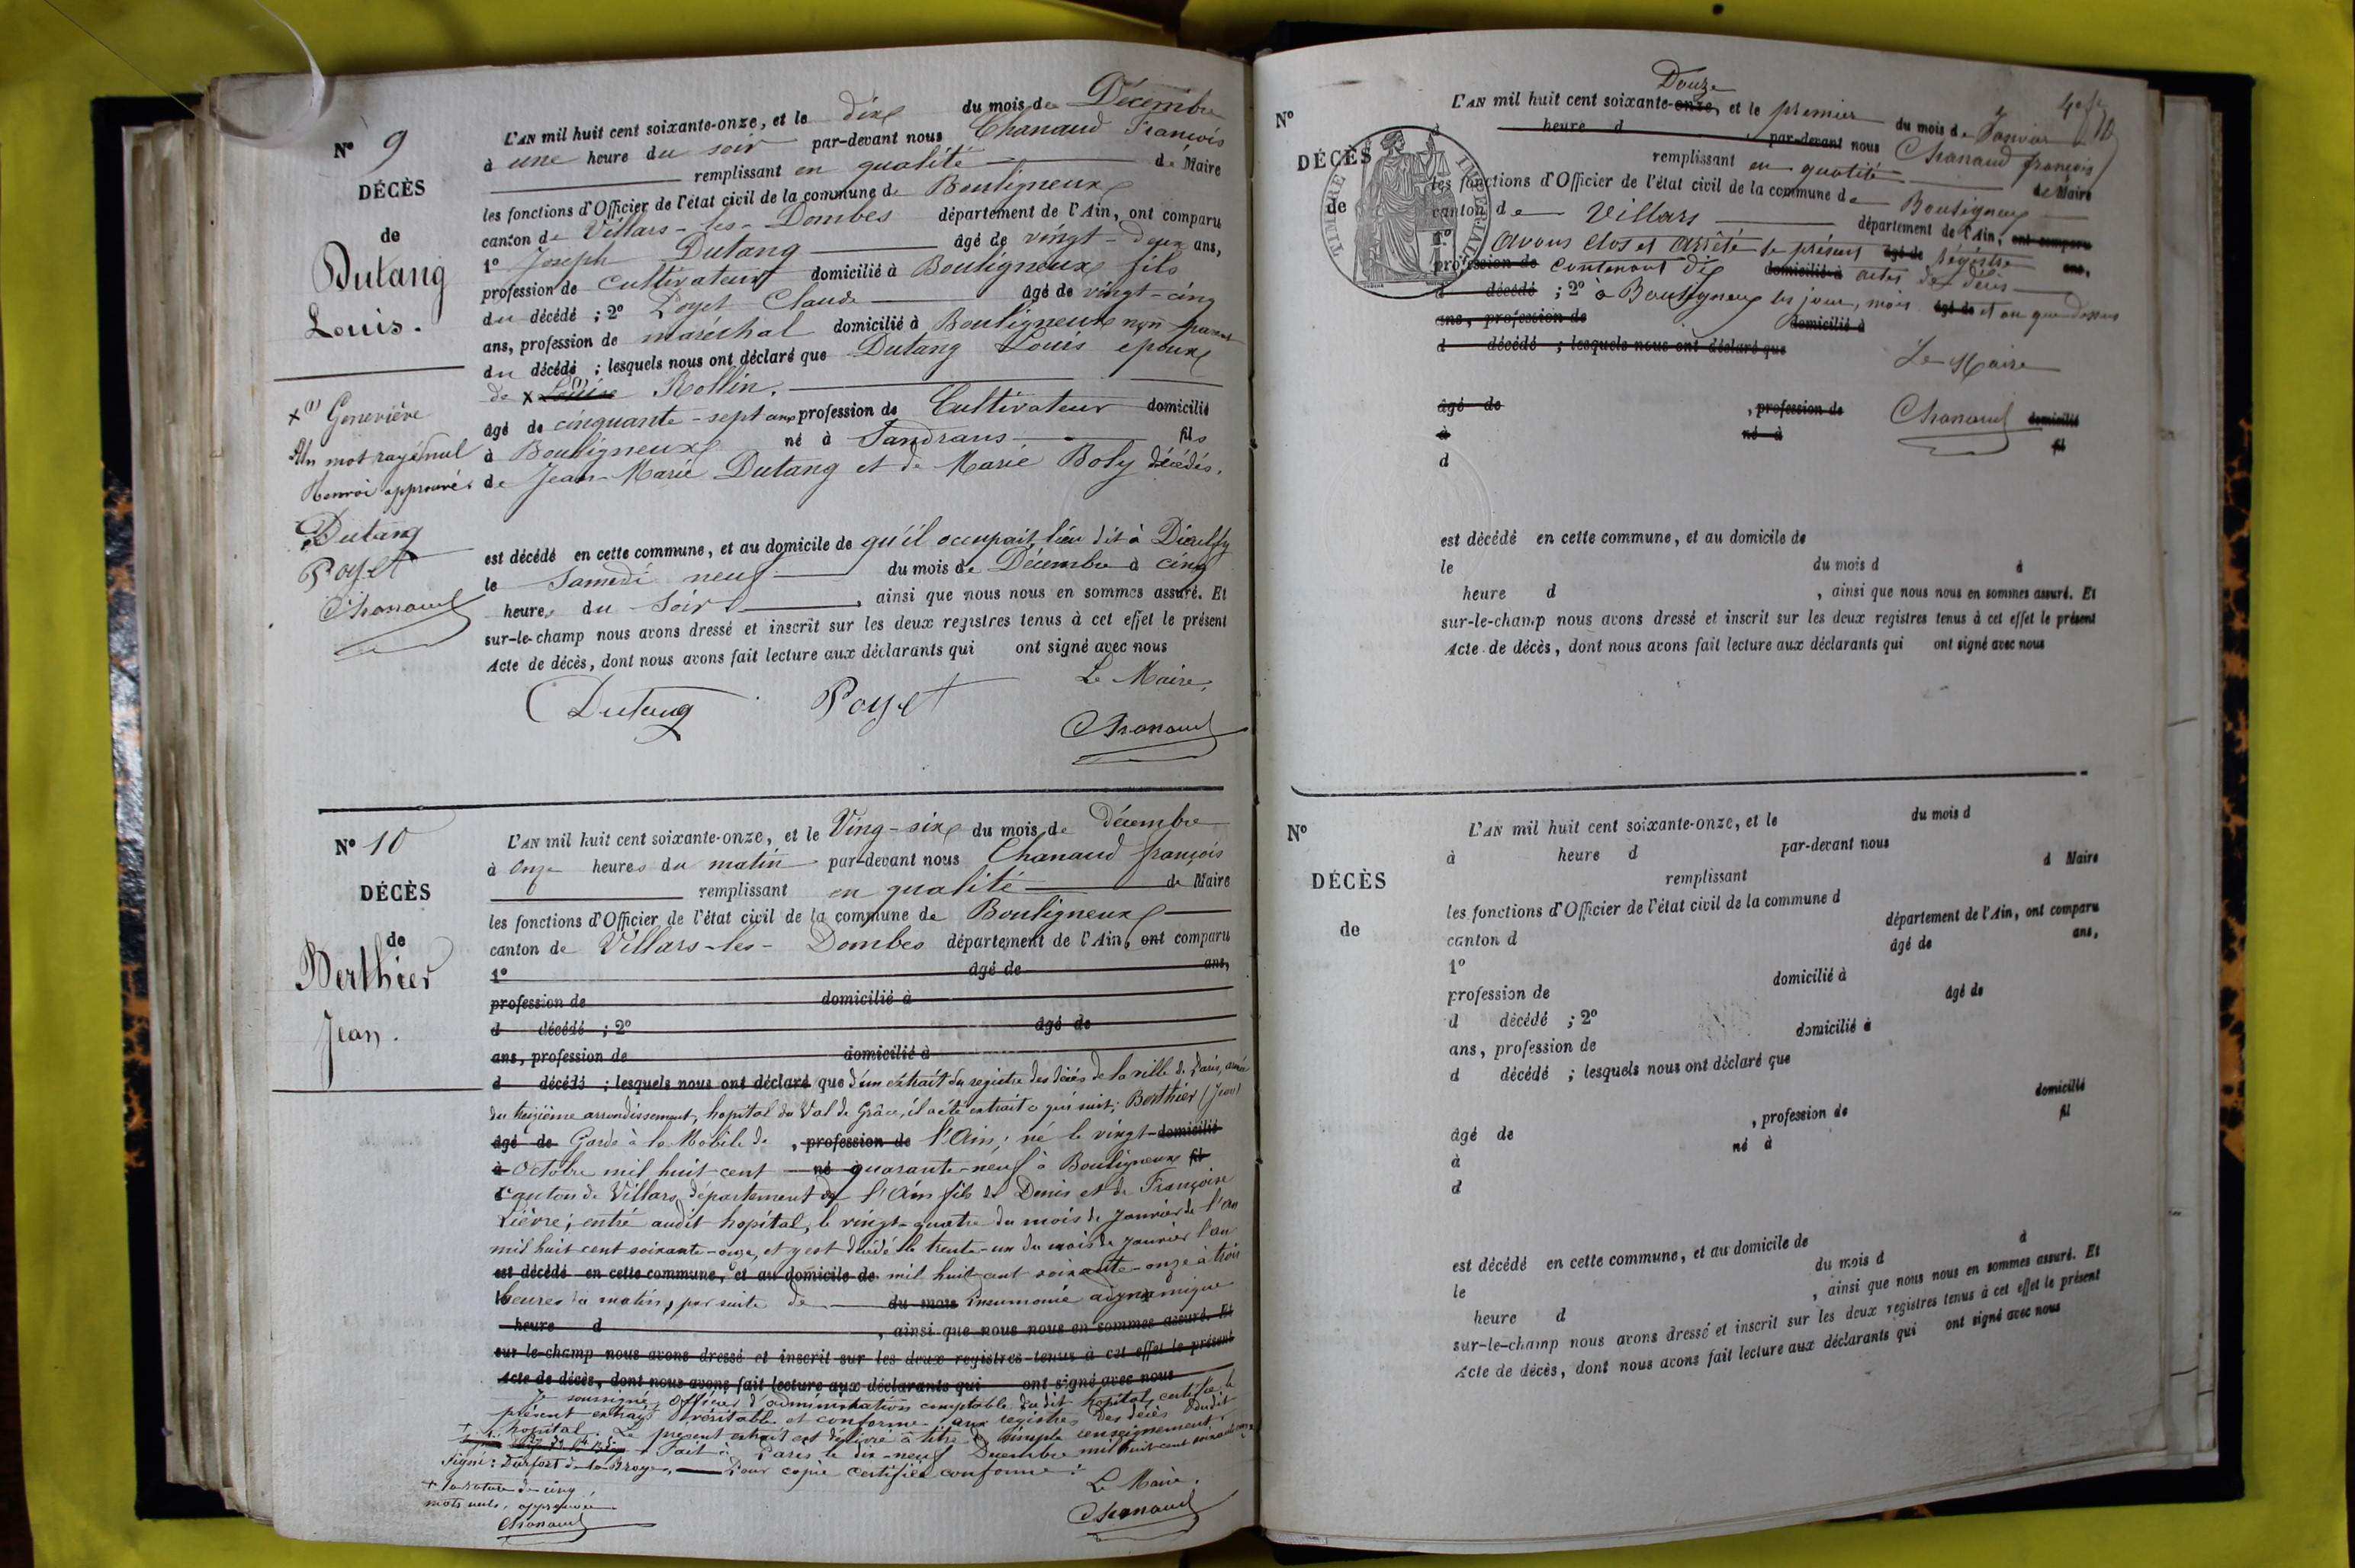 N° 9
DÉCÈS
de
Dutang
Louis.
L'AN mil huit cent soixante-onze, et le dix du mois de Décembre
à une heure du soir par-devant nous Chanaud François
remplissant en qualité de Maire
les fonctions d'Officier de l'état civil de la commune de Bouligneux
canton de Villars-les-Dombes département de l'Ain, ont comparu
1° Joseph Dutang âgé de vingt-deux ans,
profession de Cultivateur domicilié à Bouligneux fils
du décédé ; 2° Poyet Claude âgé de vingt-cinq
ans, profession de maréchal domicilié à Bouligneux non parent
du décédé ; lesquels nous ont déclaré que Dutang Louis époux
de x (1) Louise Rollin.
âgé de cinquante-sept ans profession de Cultivateur domicilié
à Bouligneux né à Sandrans fils
de Jean-Marie Dutang et de Marie Boly décédés.
x (1) Geneviève
Un mot rayé nul
Renvoi approuvé.
Dutang
Poyet
Chanaud
est décédé en cette commune, et au domicile de qu'il occupait lieu dit à
le Samedi neuf du mois de Décembre à cinq
heures du soir, ainsi que nous nous en sommes assuré. Et
sur-le-champ nous avons dressé et inscrit sur les deux registres tenus à cet effet le présent
Acte de décès, dont nous avons fait lecture aux déclarants qui ont signé avec nous
Le Maire,
Dutang Poyet
Chanaud
N° 10
DÉCÈS
de
Berthier
Jean.
L'AN mil huit cent soixante-onze, et le Ving-six du mois de décembre
à onze heures du matin par-devant nous Chanaud françois
remplissant en qualité de Maire
les fonctions d'Officier de l'état civil de la commune de Bouligneux
canton de Villars-les-Dombes département de l'Ain, ont comparu
1° âgé de ans,
profession de domicilié à
d décédé ; 2° âgé de
ans, profession de domicilié à
d décédé ; lesquels nous ont déclaré que d'un extrait du registre des décès de la ville de Paris,
du treizième arrondissement, hopital du Val de Grâce, il a été extrait ce qui suit; Berthier (Jean)
âgé de Garde à la Mobile de , profession de l'Ain; né le vingt- domicilié
à Octobre mil huit-cent né quarante-neuf à Bouligneux fil
d canton de Villars, département de l'Ain fils de Denis et de Françoise
Lièvre; entré audit hopital, le vingt-quatre du mois de Janvier de l'an
mil huit cent soixante-onze, et y est décédé le trente-un du mois de Janvier l'an
est décédé en cette commune, et au domicile de mil huit cent soixante-onze à trois
le heures du matin, par suite de du mois pneumonie adynamique
heure d , ainsi que nous nous en sommes assuré. Et
sur-le-champ nous avons dressé et inscrit sur les deux registres tenus à cet effet le présent
Acte de décès, dont nous avons fait lecture aux déclarants qui ont signé avec nous
Je soussigné, Officier d'administration comptable du dit hopital, certifie le
présent extrait véritable et conforme aux registres des décès dudit
hopital. Le présent extrait est délivré à titre de simple renseignement.
Fait à Paris le dix-neuf Décembre mil huit cent soixante-onze
Signé: Durfort de la Broye, Pour copie certifiée conforme:
Le Maire.
+ la rature de cinq
mots nuls, approuvée
Chanaud
Chanaud
N°
DÉCÈS
de
TIMBRE IMPÉRIAL
Douze
L'AN mil huit cent soixante-onze, et le premier du mois de Janvier
heure d , par-devant nous Chanaud françois
remplissant en qualité de Maire
les fonctions d'Officier de l'état civil de la commune de Bouligneux
canton de Villars département de l'Ain, ont comparu
1° avons clos et arrêté le présent âgé de régistre ans,
profession de contenant dix domicilié à actes de décès
d décédé ; 2° à Bouligneux les jour, mois âgé de et an que dessus
ans, profession de domicilié à
d décédé ; lesquels nous ont déclaré que
Le Maire
âgé de , profession de Chanaud domicilié
à né à fil
d
est décédé en cette commune, et au domicile de
le du mois d à
heure d , ainsi que nous nous en sommes assuré. Et
sur-le-champ nous avons dressé et inscrit sur les deux registres tenus à cet effet le présent
Acte de décès, dont nous avons fait lecture aux déclarants qui ont signé avec nous
N°
DÉCÈS
de
L'AN mil huit cent soixante-onze, et le du mois d
à heure d par-devant nous
remplissant d Maire
les fonctions d'Officier de l'état civil de la commune d
canton d département de l'Ain, ont comparu
1° âgé de ans,
profession de domicilié à
d décédé ; 2° âgé de
ans, profession de domicilié à
d décédé ; lesquels nous ont déclaré que
âgé de , profession de domicilié
à né à fil
d
est décédé en cette commune, et au domicile de
le du mois d à
heure d , ainsi que nous nous en sommes assuré. Et
sur-le-champ nous avons dressé et inscrit sur les deux registres tenus à cet effet le présent
Acte de décès, dont nous avons fait lecture aux déclarants qui ont signé avec nous